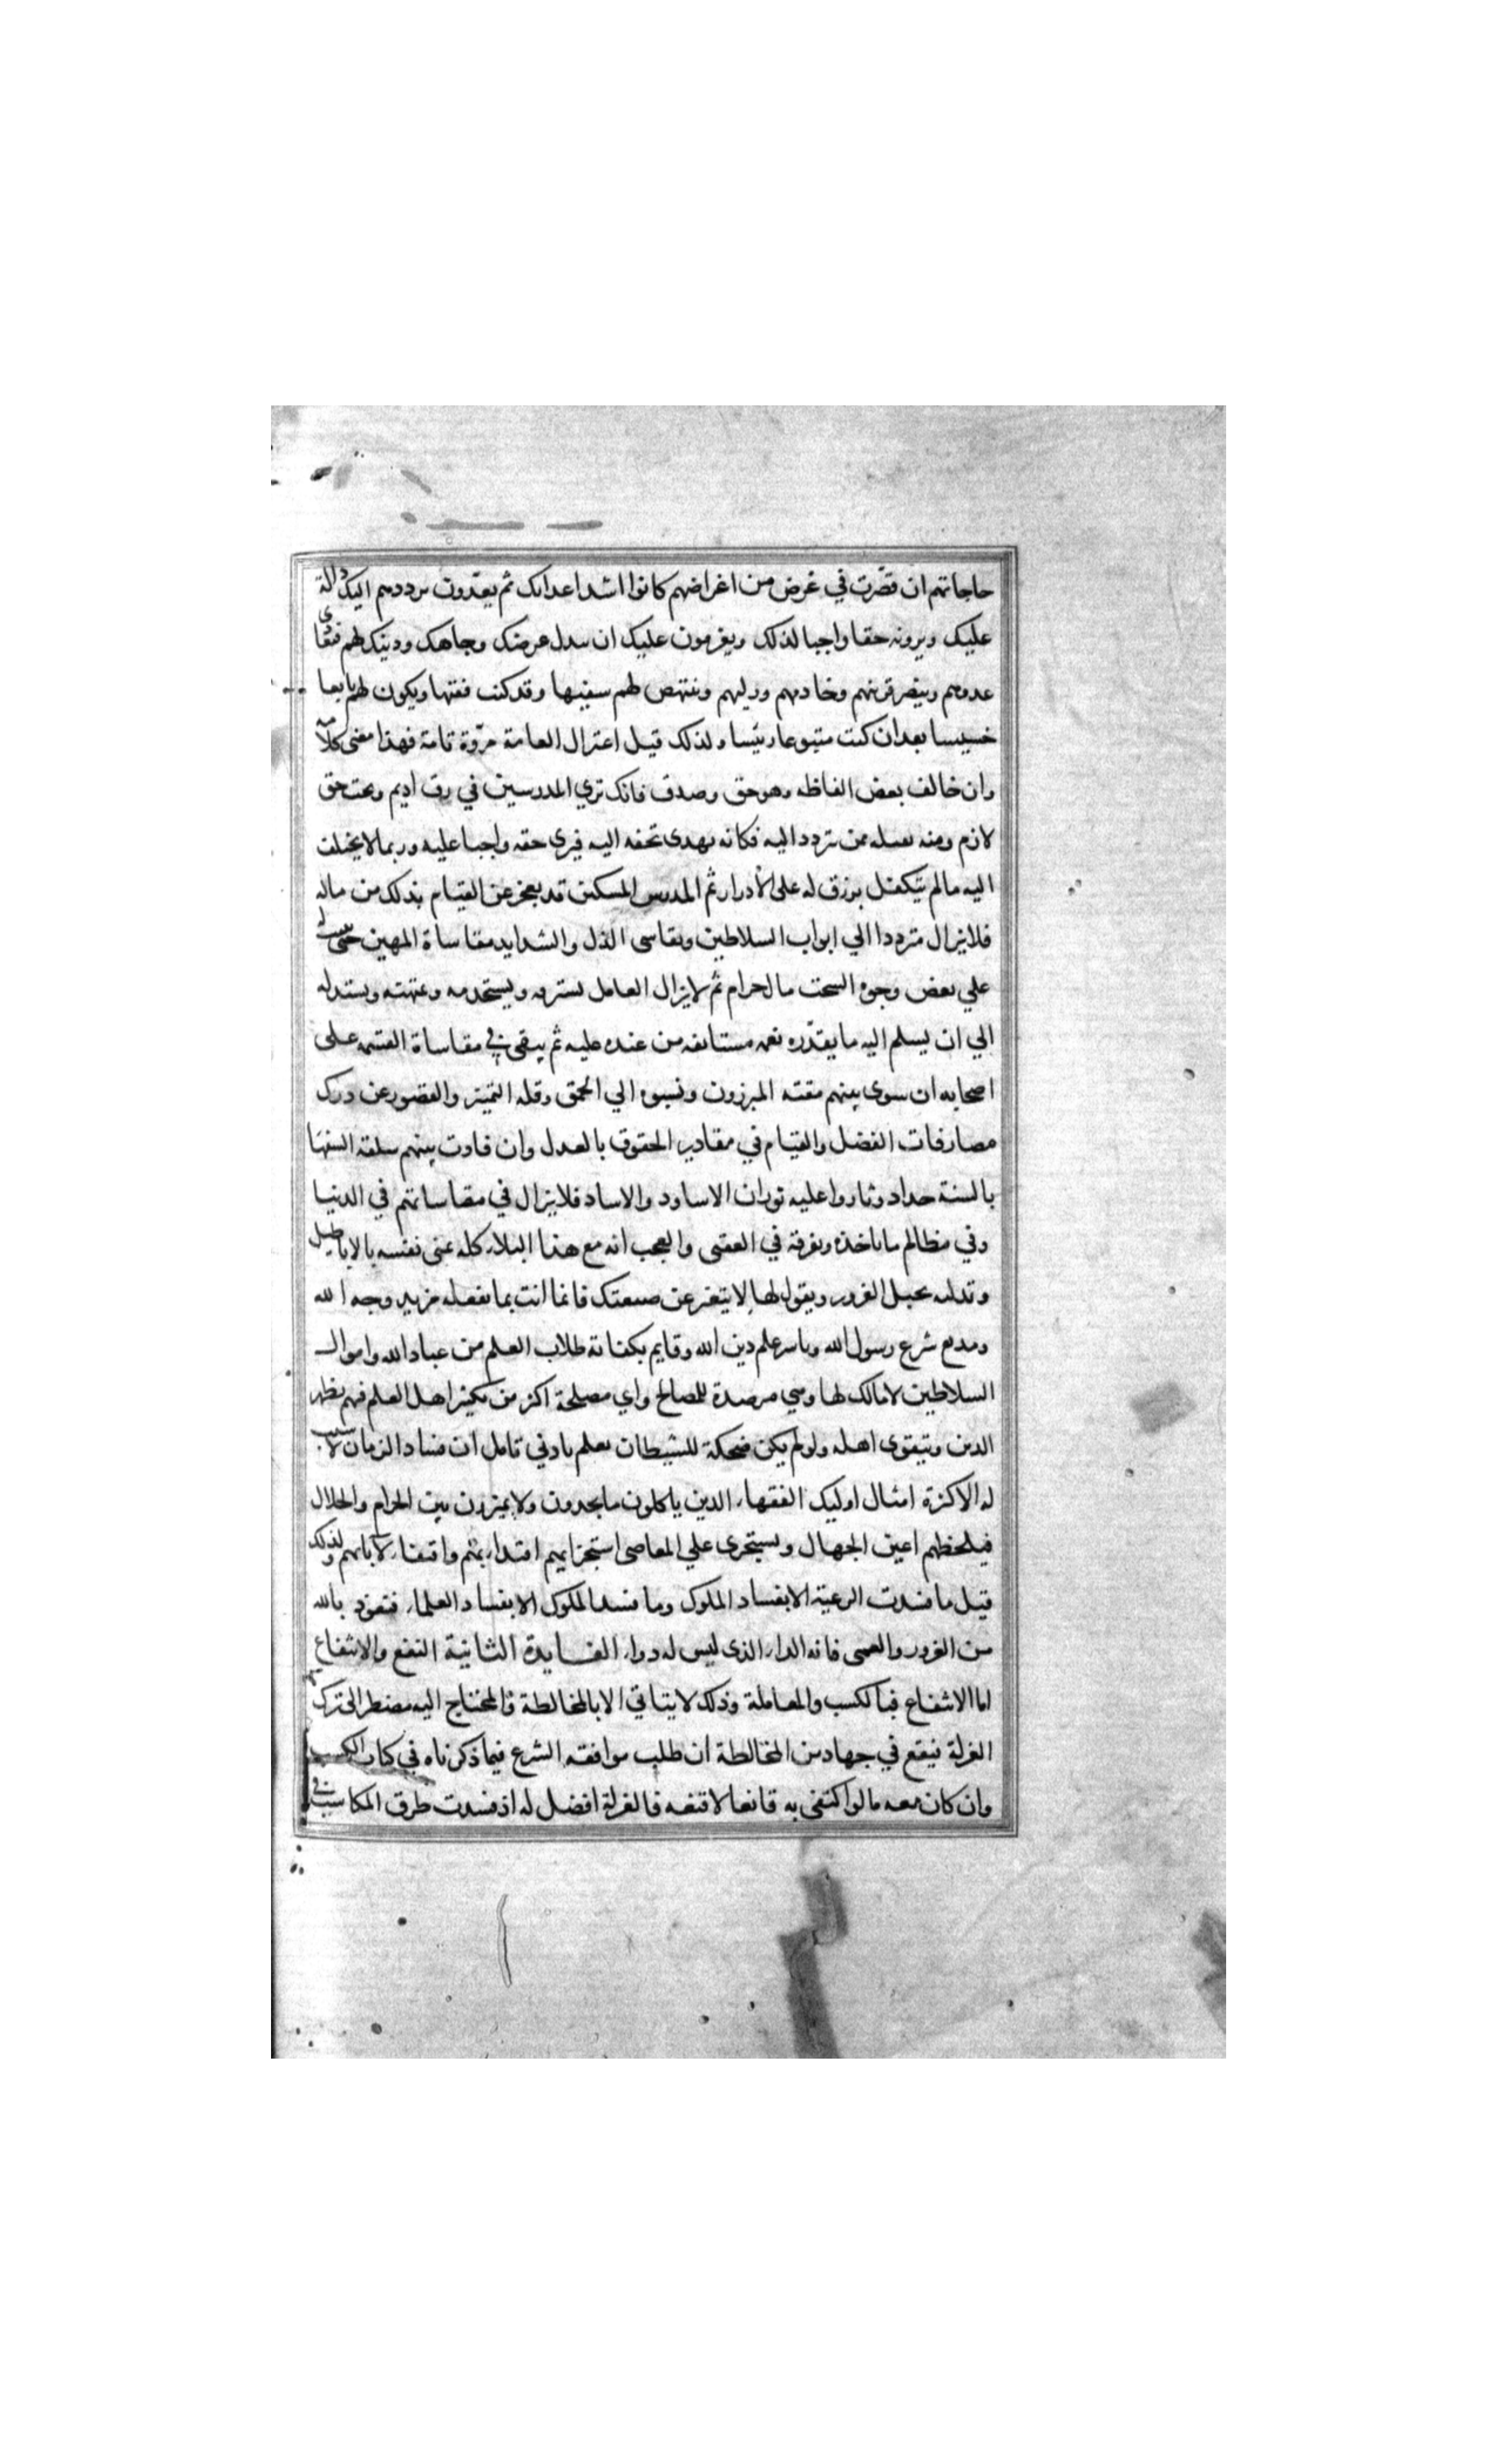 حاجاتهم ان قصّرت في غرض من اغراضهم كانوا اشد اعدايك ثم يعدّون ترددهم اليك دالة
عليك ويرونه حقا واجبا لذلك ويفرمون عليك ان تبدل عرضك وجاهك ودينك لهم فتعادى
عدوهم وينصر قرينهم وخادمهم ووليهم وتنتهض لهم سفيها وقد كنت فقيها ويكون لهم تابعا
خسيسا بعد ان كنت متبوعا رئيسا ولذلك قيل اعتزال العامة مروّة تامة فهذا معنى كلامه
وان خالف بعض الفاظه وهو حق وصدق فانك تري المدرسين في رق اديم وتحت حق
لازم ومنه ثقيله ممن تردد اليه فكانه يهدى تحفه اليه فيرى حقه واجبا عليه وربما لا يختلف
اليه مالم يتكفل برزق له على الأدرار ثم المدرس المسكين قد يعجز عن القيام بذلك من ماله
فلا يزال مترددا الي ابواب السلاطين ويقاسى الذل والشدايد مقاساة المهين حتى يكتب له
علي بعض وجوه السحت مال حرام ثم لا يزال العامل يسترقه ويستخدمه ويمتهنه ويستدله
الي ان يسلم اليه ما يقدّره نعمه مستانفه من عنده عليه ثم يبقى في مقاساة القسمه على
اصحابه ان سوى بينهم مقته المبرزون ونسبوه الي الحمق وقله التميز والقصور عن درك
مصارفات الفضل والقيام في مقادير الحقوق بالعدل وان فاوت بينهم سلقه السفها
بالسنة حداد وثاروا عليه ثوران الاساود والاساد فلا يزال في مقاساتهم في الدنيا
وفي مظالم ما ياخذه ويفرقه في العقبى والعجب انه مع هذا البلاء كله يمنى نفسه بالاباطيل
وتدليه بحبل الغرور ويقول لها لا يتفتر عن صنيعتك فانما انت بما تفعله مريد وجه الله
ومذيع شرع رسول الله وناشر علم دين الله وقايم بكفاية طلاب العلم من عباد الله واموال
السلاطين لا مالك لها وهي مرصدة للمصالح واي مصلحة اكبر من تكثير اهل العلم فبهم يظهر
الدين ويتقوى اهله ولو لم يكن ضحكة للشيطان لعلم بادني تامل ان فساد الزمان لا سبب
له الا كثرة امثال اوليك الفقهاء الدين ياكلون ما يجدون ولا يميزون بين الحرام والحلال
فيلحظهم اعين الجهال ويستجرى علي المعاصى استجرايهم اقتداء بهم واقتفاء لاثارهم ولذلك
قيل ما فسدت الرعية الا بفساد الملوك وما فسد الملوك الا بفساد العلماء فنعوذ بالله
من الغرور والعمى فانه الداء الذى ليس له دواء الفايدة الثانية النفع والانتفاع
اما الانتفاع فبالكسب والمعاملة وذلك لا يتاتي الا بالمخالطة فالمحتاج اليه مضطر الى ترك
العزلة فيقع في جهاد من المخالطة ان طلب موافقه الشرع فيما ذكرناه في كتاب الكسب
وان كان معه ما لو اكتفى به قانعا لاقنعه فالعزلة افضل له اذ فسدت طرق المكاسب في